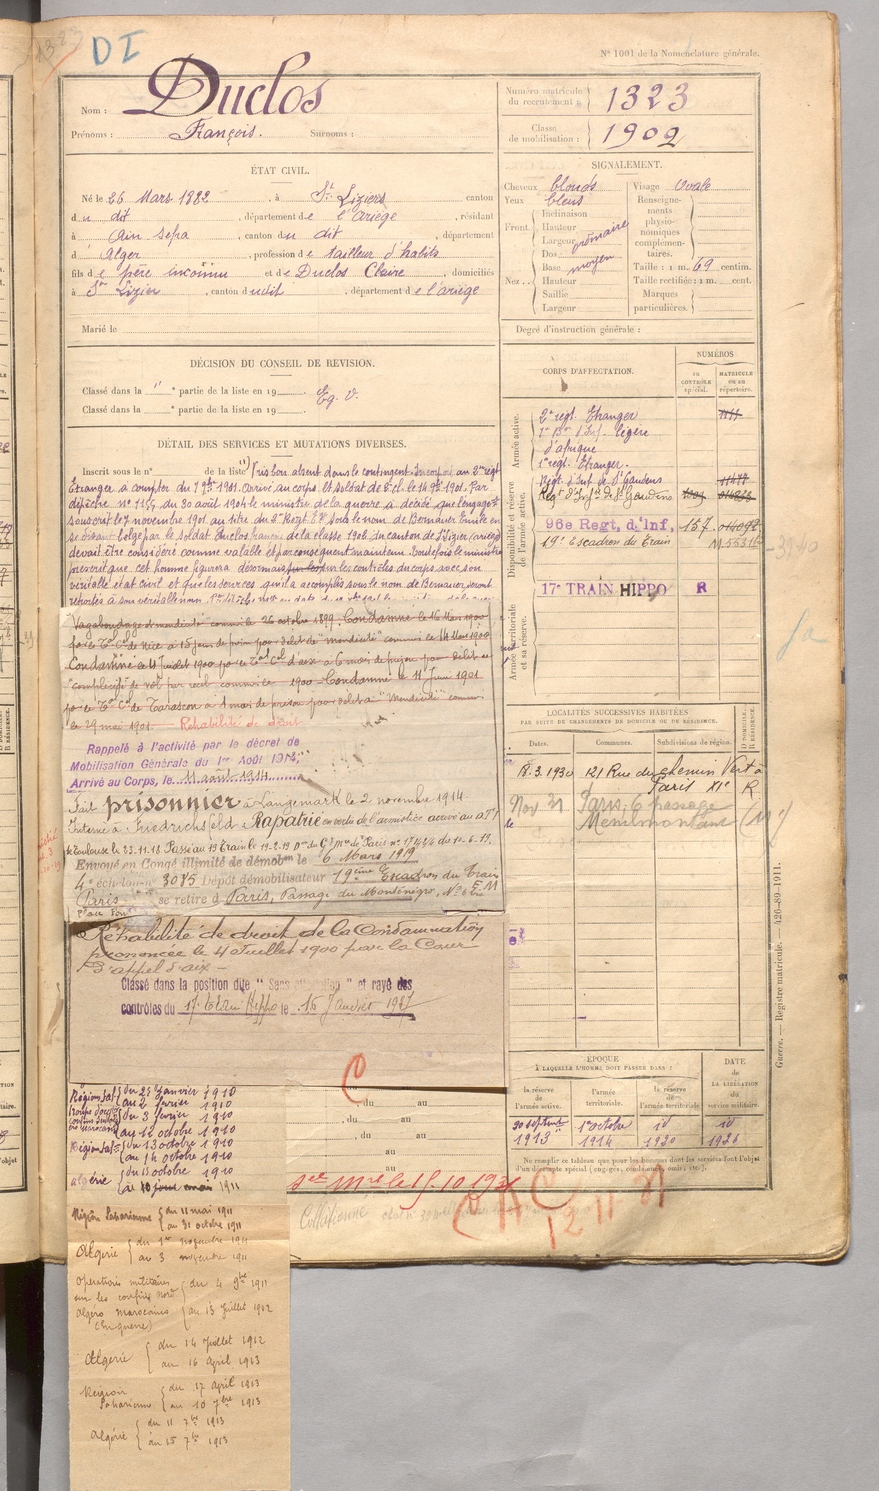 1323
DI
N° 1001 de la Nomenclature générale.
Nom : Duclos
Prénoms : François. Surnoms :
Numéro matricule du recrutement : 1323
Classe de mobilisation : 1902
ÉTAT CIVIL.
Né le 26 Mars 1882, à St Liziers canton
du dit, département de l'ariège, résidant
à Ain Sefra, canton du dit, département
d'Alger, profession de tailleur d'habits
fils de père inconnu et de Duclos Claire, domiciliés
à St Lizier, canton dudit, département de l'ariège
Marié le
SIGNALEMENT.
Cheveux blonds Visage Ovale
Yeux bleus
Front. Inclinaison
Hauteur
Largeur
Nez. Dos
Base moyen
Hauteur
Saillie
Largeur
Renseignements physionomiques complémentaires.
Taille : 1 m. 69 centim.
Taille rectifiée : 1 m. cent.
Marques particulières.
Degré d'instruction générale :
DÉCISION DU CONSEIL DE REVISION.
Classé dans la " e partie de la liste en 19 Eg. V.
Classé dans la e partie de la liste en 19
DÉTAIL DES SERVICES ET MUTATIONS DIVERSES.
Inscrit sous le n° de la liste (Pris bon absent dans le contingent. Incorporé au 2e régt
Etranger à compter du 7 9bre 1901. Arrivé au corps et soldat de 2e cl. le 14 9bre 1901. Par
dépêche n° du 30 août 1904 le ministre de la guerre a décidé que l'engagt
souscrit le 7 novembre 1901 au titre du 2e Regt Er sous le nom de Bernauer Emile en
se disant belge par le soldat Duclos français de la classe 1902 du canton de St Lizier (ariège)
devait être considéré comme valable et par conséquent maintenu. Toutefois le ministre
prescrit que cet homme figurera désormais sur les contrôles du corps avec son
véritable état civil et que les services qu'il a accomplis sous le nom de Bernauer seront
reportés à son véritable nom
Vagabondage et mendicité commis le 26 octobre 1899. Condamné le 16 Mars 1900
par le Tal Cel de Nice à 15 jours de prison pour délit de "mendicité" commis le 14 Mars 1900
Condamné le 4 Juillet 1900 par le Tal Cel d'aix à 6 mois de prison pour délit de
"complicité de vol par recel commis le 1900 Condamné le 11 Juin 1901
par le Tal Cel de Tarascon à 1 mois de prison pour délit de "Mendicité" commis
le 29 mai 1901. Réhabilité de droit
Rappelé à l'activité par le décret de
Mobilisation Générale du 1er Août 1914,
Arrivé au Corps, le 11 août 1914
Fait prisonnier à Langemark le 2 novembre 1914
Interné à Friedrichsfeld. Rapatrié en vertu de l'armistice arrivé au
de Toulouse le 23.11.18. Passé au 19 Train le 19.2.19
Envoyé en Congé illimité de démobon le 6 Mars 1919
4e échelon n° 3085 Dépôt démobilisateur 19ème Escadron du Train
Paris se retire à Paris, Passage du Monténégro, N° 6 bis
Réhabilité de droit de la Condamnation
prononcée le 4 Juillet 1900 par la Cour
d'appel d'aix
Classé dans la position dite "Sans affectation" et rayé des
contrôles du 17e Train Hippo le 15 Janvier 1927
CORPS D'AFFECTATION.
NUMÉROS
au CONTRÔLE spécial.
MATRICULE ou au répertoire.
Armée active.
2e régt. Etranger
1er Bon d'Inf. légère
d'afrique
1er régt. Etranger.
Disponibilité et réserve de l'armée active.
Régt d'Inf. de St Gaudens
Regt d'Infie de St Gaudens
96e Regt, d'Inf, 157
19e Escadron du Train
17e TRAIN HIPPO R
Armée territoriale et sa réserve.
LOCALITÉS SUCCESSIVES HABITÉES
PAR SUITE DE CHANGEMENTS DE DOMICILE OU DE RÉSIDENCE.
Dates. Communes. Subdivisions de région. D. DOMICILE. R. RÉSIDENCE.
18.3.1930 121 Rue du chemin Vert à
Paris XIe R
Nov 31 Paris, 6 passage
Menilmontant (11e)
ÉPOQUE
À LAQUELLE L'HOMME DOIT PASSER DANS :
la réserve de l'armée active. l'armée territoriale. la réserve de l'armée territoriale
DATE de LA LIBÉRATION du service militaire.
30 septembre 1913 1er octobre 1914 id 1920 id 1926
Ne remplir ce tableau que pour les hommes dont les services font l'objet
d'un décompte spécial (engagés, condamnés, omis, etc.).
Guerre. — Registre matricule. — 426-89-1911.
C
, du au
, du au
, du au
au
au
du 25 janvier 1910
au 2 février 1910
du 3 février 1910
au 12 octobre 1910
du 13 octobre 1910
au 14 octobre 1910
algérie du 15 octobre 1910
au 10 mai 1911
12 11 31
Collationné
Région Saharienne du 11 mai 1911
au 31 octobre 1911
Algérie du 1er novembre 1911
au 3 novembre 1911
Opérations militaires
sur les confins Nord
Algéro marocains
(En guerre)
du 4 9bre 1911
au 13 Juillet 1912
Algérie du 14 Juillet 1912
au 16 April 1913
Région Saharienne du 17 April 1913
au 10 7bre 1913
Algérie du 11 7bre 1913
au 15 7bre 1913